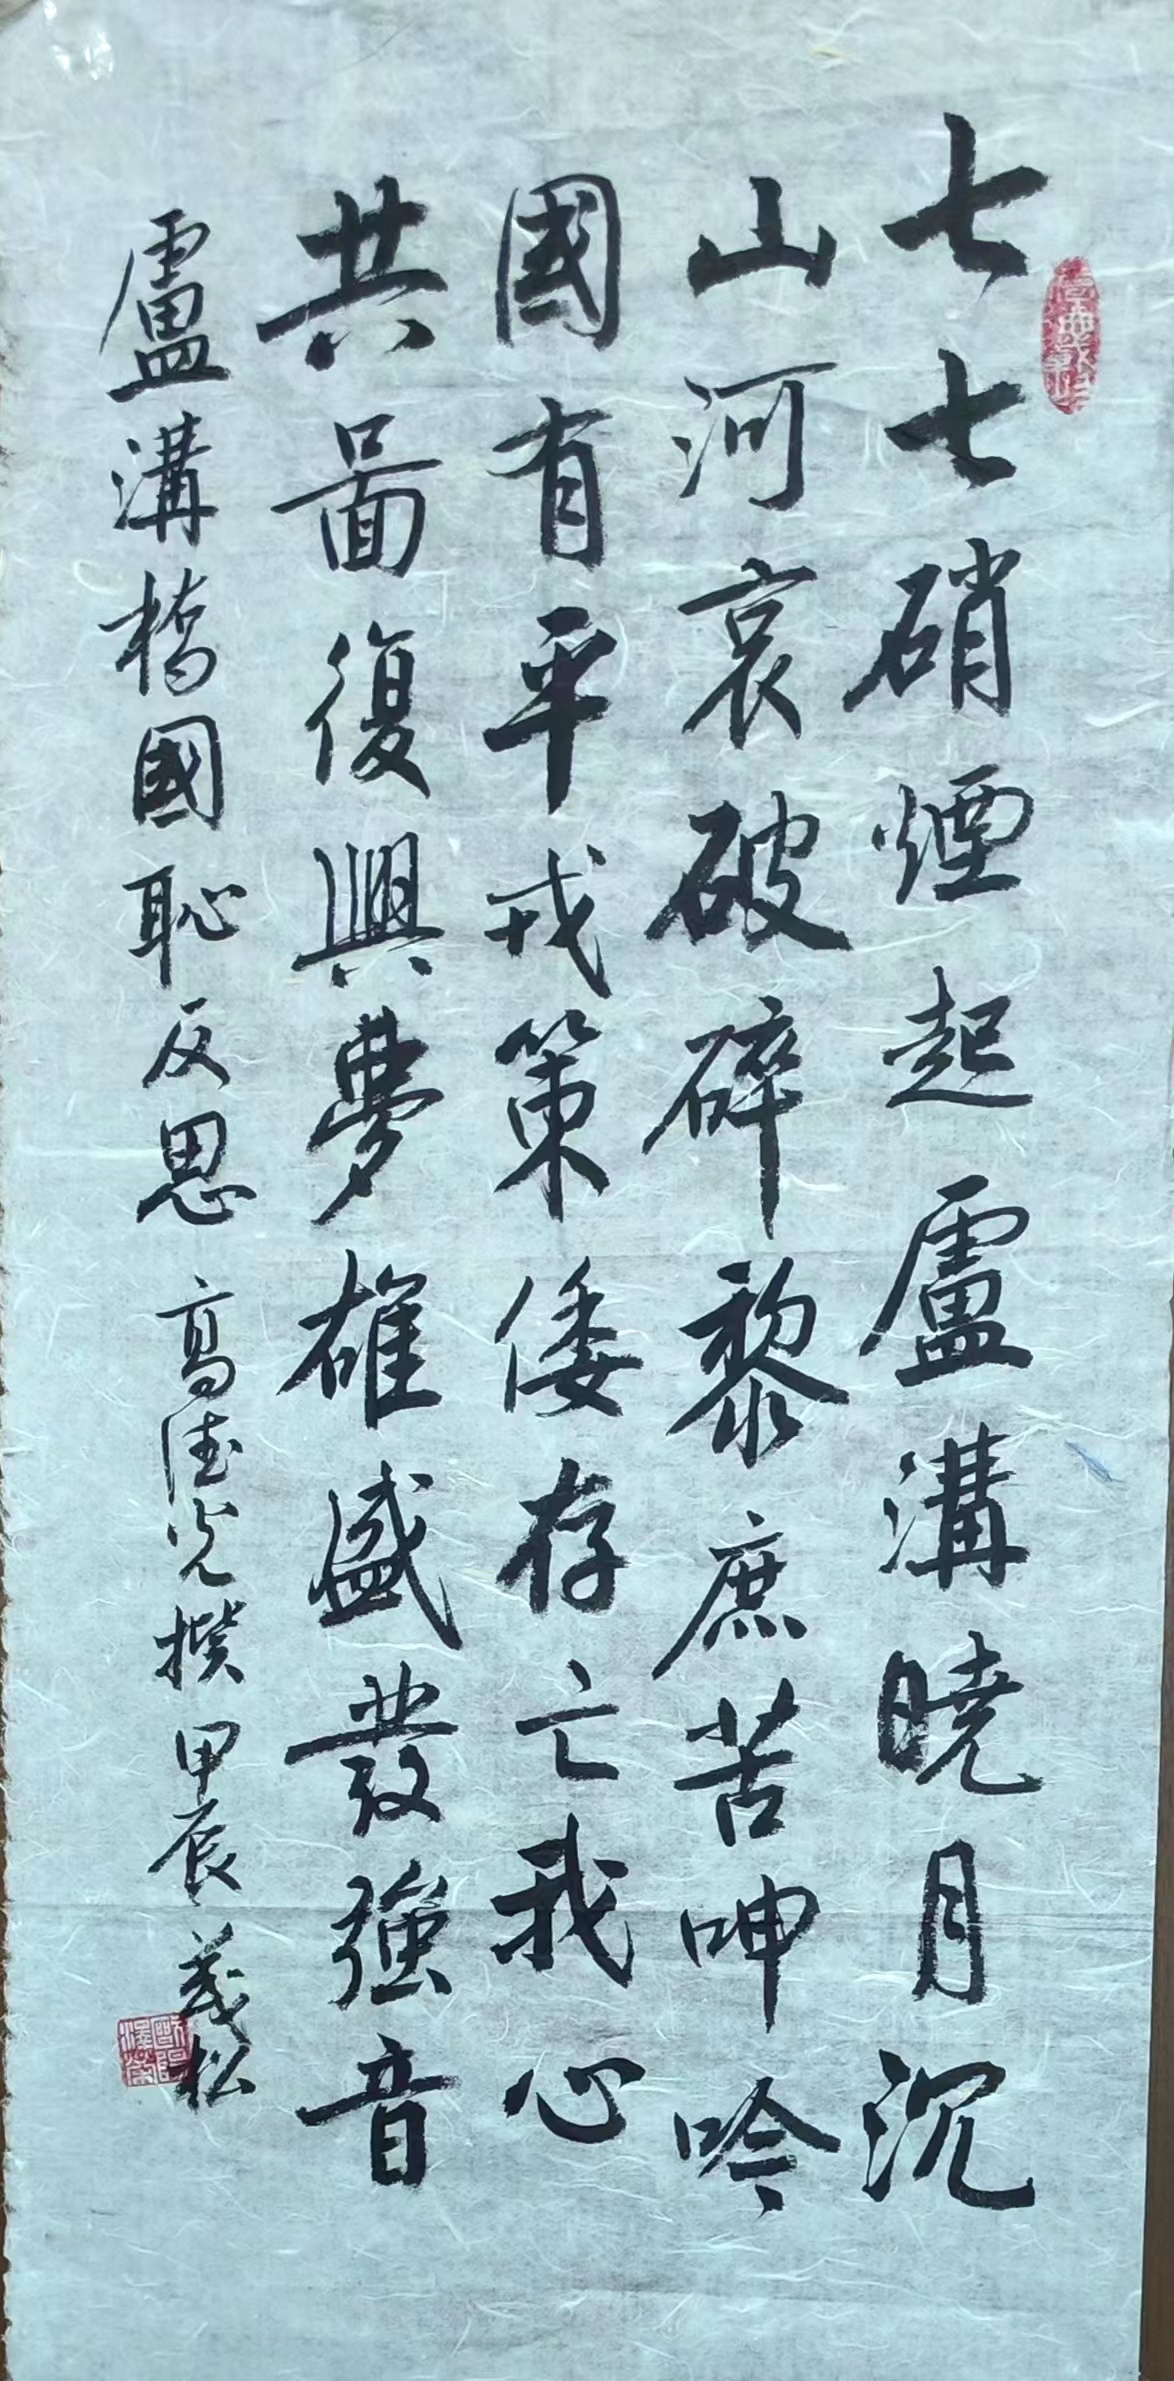 七七硝煙起盧溝曉月沉
山河哀破碎黎庶苦呻吟
國有平戎策倭存亡我心
共啚復興夢雄盛發強音
盧溝橋國恥反思 高德光撰 甲辰 茂松